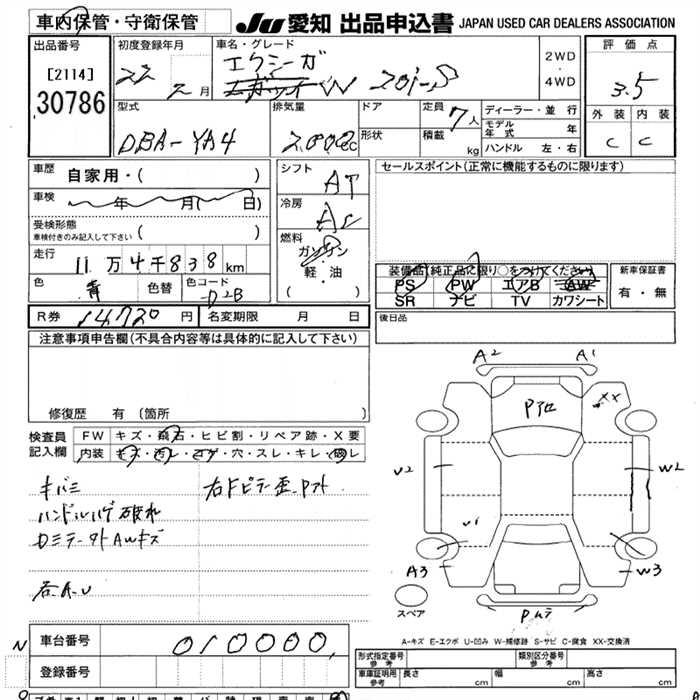 車内保管・守衛保管
JU 愛知 出品申込書 JAPAN USED CAR DEALERS ASSOCIATION
出品番号
[2114]
30786
初度登録年月
22 2月
車名・グレード
エクシーガ
2.0i-S
2WD
・
4WD
評価点
3.5
外装 内装
C C
型式
DBA-YA4
排気量
2000cc
ドア
形状
定員 7人
積載 kg
ディーラー・並行
モデル年式 年
ハンドル 左・右
車歴 自家用・( )
車検 年 月( 日)
受検形態
車検付きのみ記入して下さい ( )
走行 11万4千838km
色 青 色替 色コード D2B
シフト
AT
冷房
AC
燃料
ガソリン
軽・油
( )
セールスポイント(正常に機能するものに限ります)
装備品(純正品に限り○をつけてください)
PS PW エアB AW
SR ナビ TV カワシート
新車保証書
有・無
R券 14720円 名変期限 月 日
後日品
注意事項申告欄(不具合内容等は具体的に記入して下さい)
修復歴 有 (箇所 )
検査員
記入欄
FW キズ・飛石・ヒビ割・リペア跡・X要
内装 キズ・汚レ・コゲ・穴・スレ・キレ・破レ
キバミ
ハンドルハゲ破れ
右A.U
A2 A1
XX
U2
W2
U1
A3
W3
スペア
A-キズ E-エクボ U-凹み W-補修跡 S-サビ C-腐食 XX-交換済
車台番号 010000
登録番号
形式指定番号
参考
類別区分番号
参考
車庫証明用
参考
長さ cm 幅 cm 高さ cm